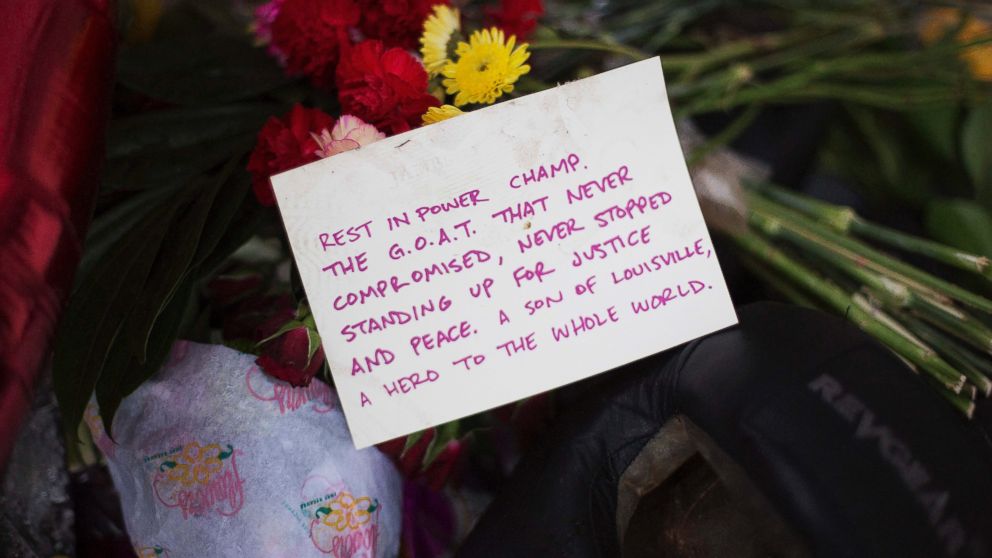 REST IN POWER CHAMP.
THE G.O.A.T. THAT NEVER
COMPROMISED, NEVER STOPPED
STANDING UP FOR JUSTICE
AND PEACE. A SON OF LOUISVILLE,
A HERO TO THE WHOLE WORLD.
REVGEAR
flowers
flowers